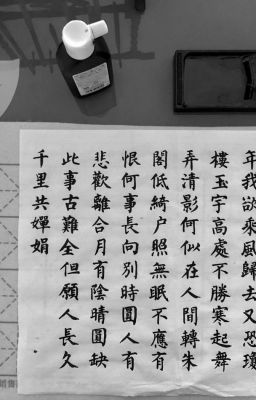 年我欲乘風歸去又恐瓊
樓玉宇高處不勝寒起舞
弄清影何似在人間轉朱
閣低綺户照無眠不應有
恨何事長向別時圓人有
悲歡離合月有陰晴圓缺
此事古難全但願人長久
千里共嬋娟